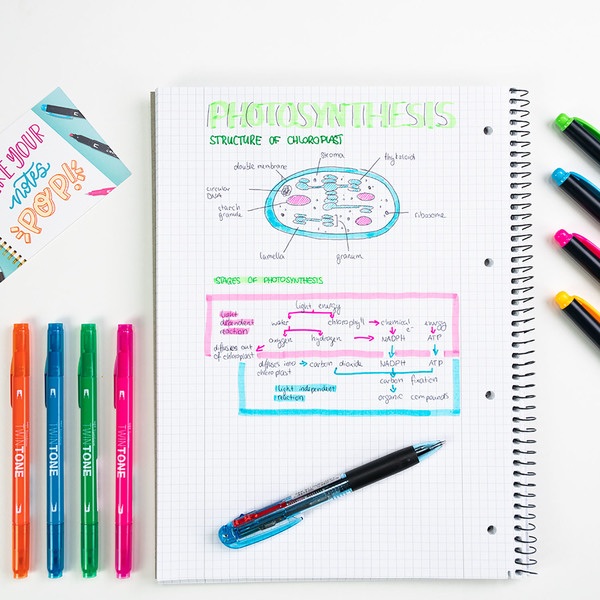 MAKE YOUR
notes
POP!
PHOTOSYNTHESIS
STRUCTURE OF CHLOROPLAST
double membrane
stroma
thylakoid
circular
DNA
starch
granule
ribosome
lamella
granum
STAGES OF PHOTOSYNTHESIS
light energy
light
dependent
reaction
water
chlorophyll
chemical
energy
e⁻
oxygen
hydrogen
NADPH
ATP
diffuses out
of chloroplast
diffuses into
chloroplast
carbon dioxide
NADPH
ATP
carbon fixation
light independent
reaction
organic compounds
TWINTONE
TWINTONE
TWINTONE
TWINTONE